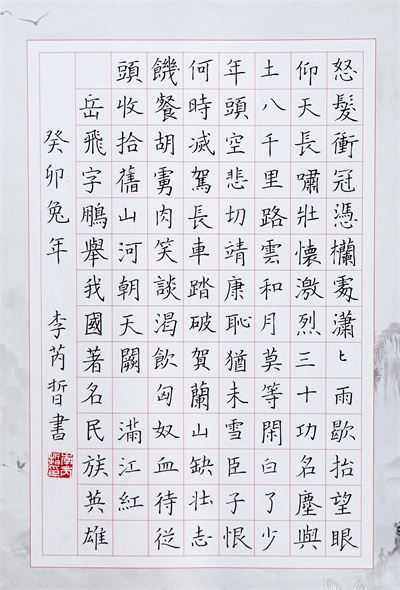 怒髮衝冠憑欄處瀟匕雨歇抬望眼
仰天長嘯壯懷激烈三十功名塵與
土八千里路雲和月莫等閑白了少
年頭空悲切靖康恥猶未雪臣子恨
何時滅駕長車踏破賀蘭山缺壯志
饑餐胡虜肉笑談渴飲匈奴血待從
頭收拾舊山河朝天闕 滿江紅
岳飛字鵬舉我國著名民族英雄
癸卯兔年 李芮晢書